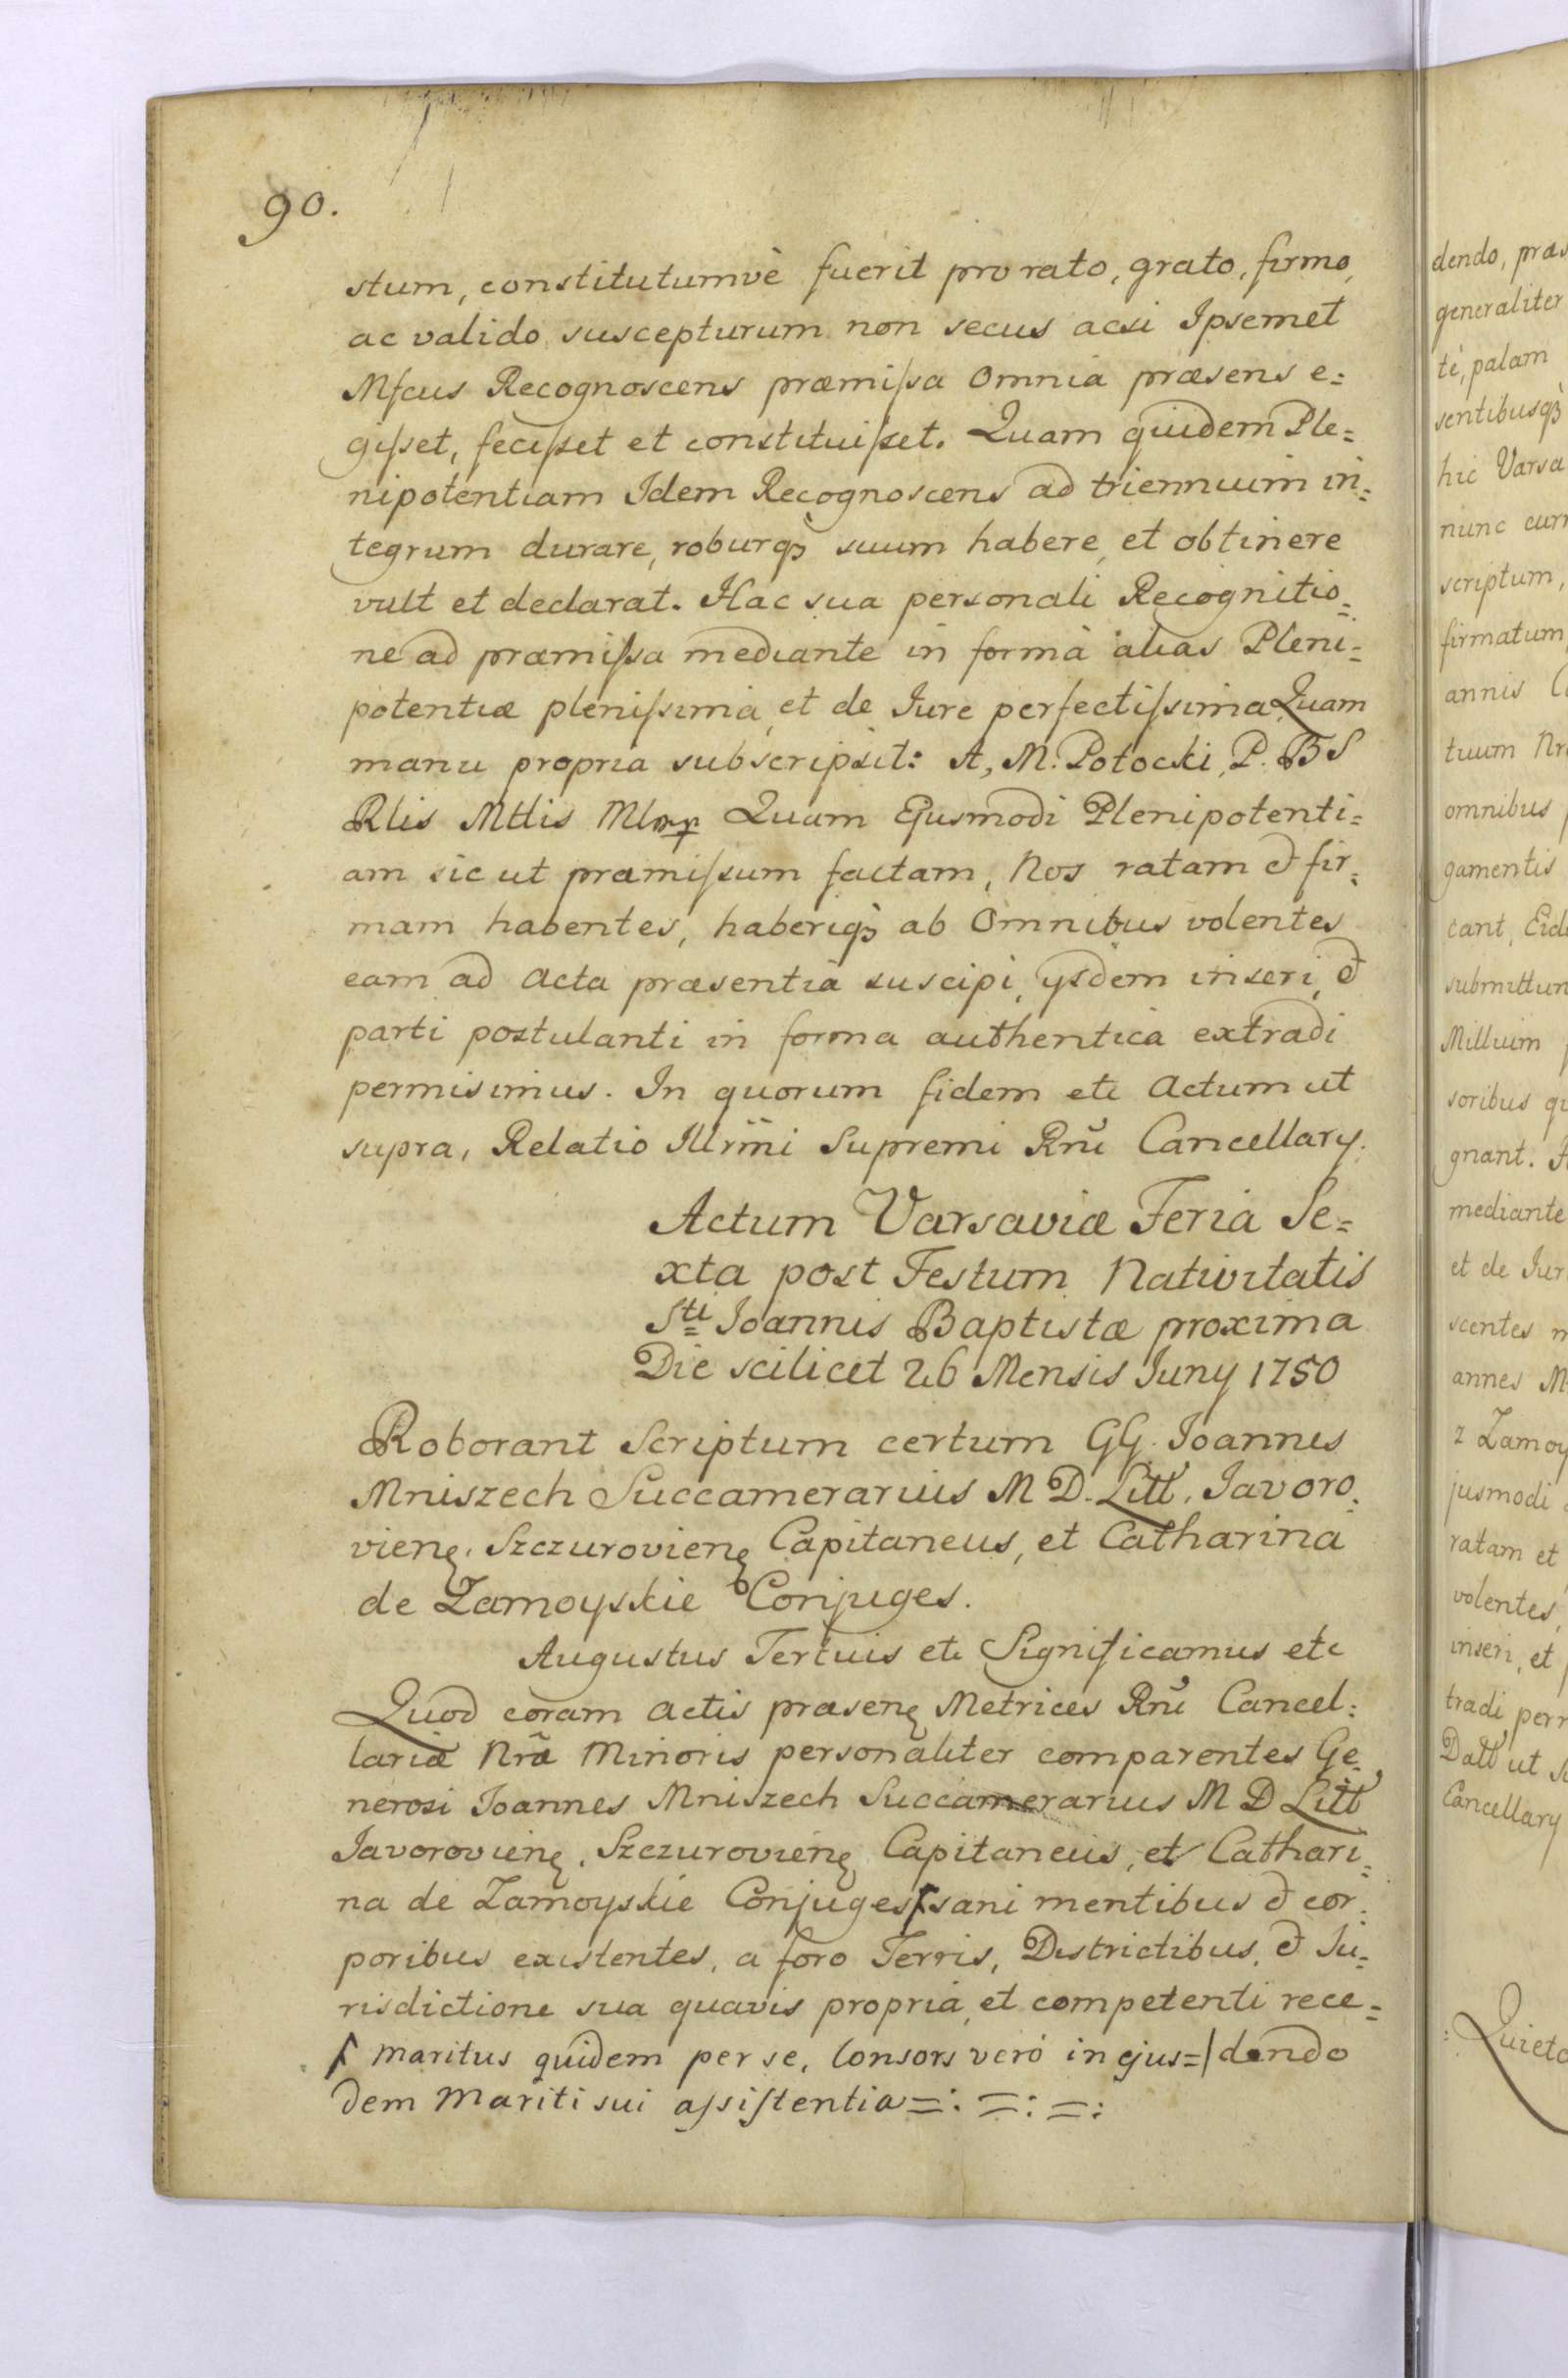 90.
stum, constitutumvè fuerit pro rato, grato, firmo,
ac valido suscepturum non secus acsi Ipsemet
Mfcus Recognoscens præmiſsa omnia præsens e=
giſset, feciſset et constituiſset. Quam quidem Ple=
nipotentiam Idem Recognoscens ad triennium in=
tegrum durare, roburqꝫ suum habere, et obtinere
vult et declarat. Hac sua personali Recognitio=
ne ad præmiſsa mediante in forma alias Pleni=
potentiæ pleniſsima, et de Iure perfectiſsima Quam
manu propria subscripsit: A, M. Potocki, P. BS
Rlis Mttis Mlo mp Quam Ejusmodi Plenipotenti=
am sic ut præmiſsum factam, Nos ratam & fir=
mam habentes, haberiqꝫ ab omnibus volentes
eam ad acta præsentia suscipi, ysdem inseri, &
parti postulanti in forma authentica extradi
permisimus. In quorum fidem etc Actum ut
supra, Relatio Illrm̃i Supremi Rnĩ Cancellary.
Actum Varsaviæ Feria Se=
xta post Festum Nativitatis
Sti Ioannis Baptistæ proxima
Die scilicet 26 Mensis Iuny 1750
Roborant Scriptum certum GG. Ioannes
Mniszech Succamerarius M D. Litt, Iavoro=
vienę. Szczurovienę Capitaneus, et Catharina
de Zamoyskie Conjuges.
Augustus Tertius etc Significamus etc
Quod coram actis præsenę Metrices Rnĩ Cancel=
lariæ Nræ̃ Minoris personaliter comparentes Ge=
nerosi Ioannes Mniszech Succamerarius M D Litt
Iavorovienę. Szczurovienę Capitaneus, et Cathari=
na de Zamoyskie Conjuges ſ sani mentibus & cor=
poribus existentes, a foro Terris, Districtibus, & Iu=
risdictione sua quavis propria, et competenti rece=
ſ maritus quidem per se, Consors verò in ejus=| dendo
dem Mariti sui aſsiſtentia =: =: =:
dendo, præs
generaliter
tè, palam
sentibusqꝫ
hic Varsa
nunc curr
scriptum,
firmatum
annis
tuum
omnibus
gamentis
cant,
submittun
Millium
soribus
gnant.
mediante
et de Iur
scentes
annes M
z Zamoy
jusmodi
ratam et
volentes,
inseri, et
tradi
Datt ut
Cancellary
Quieta